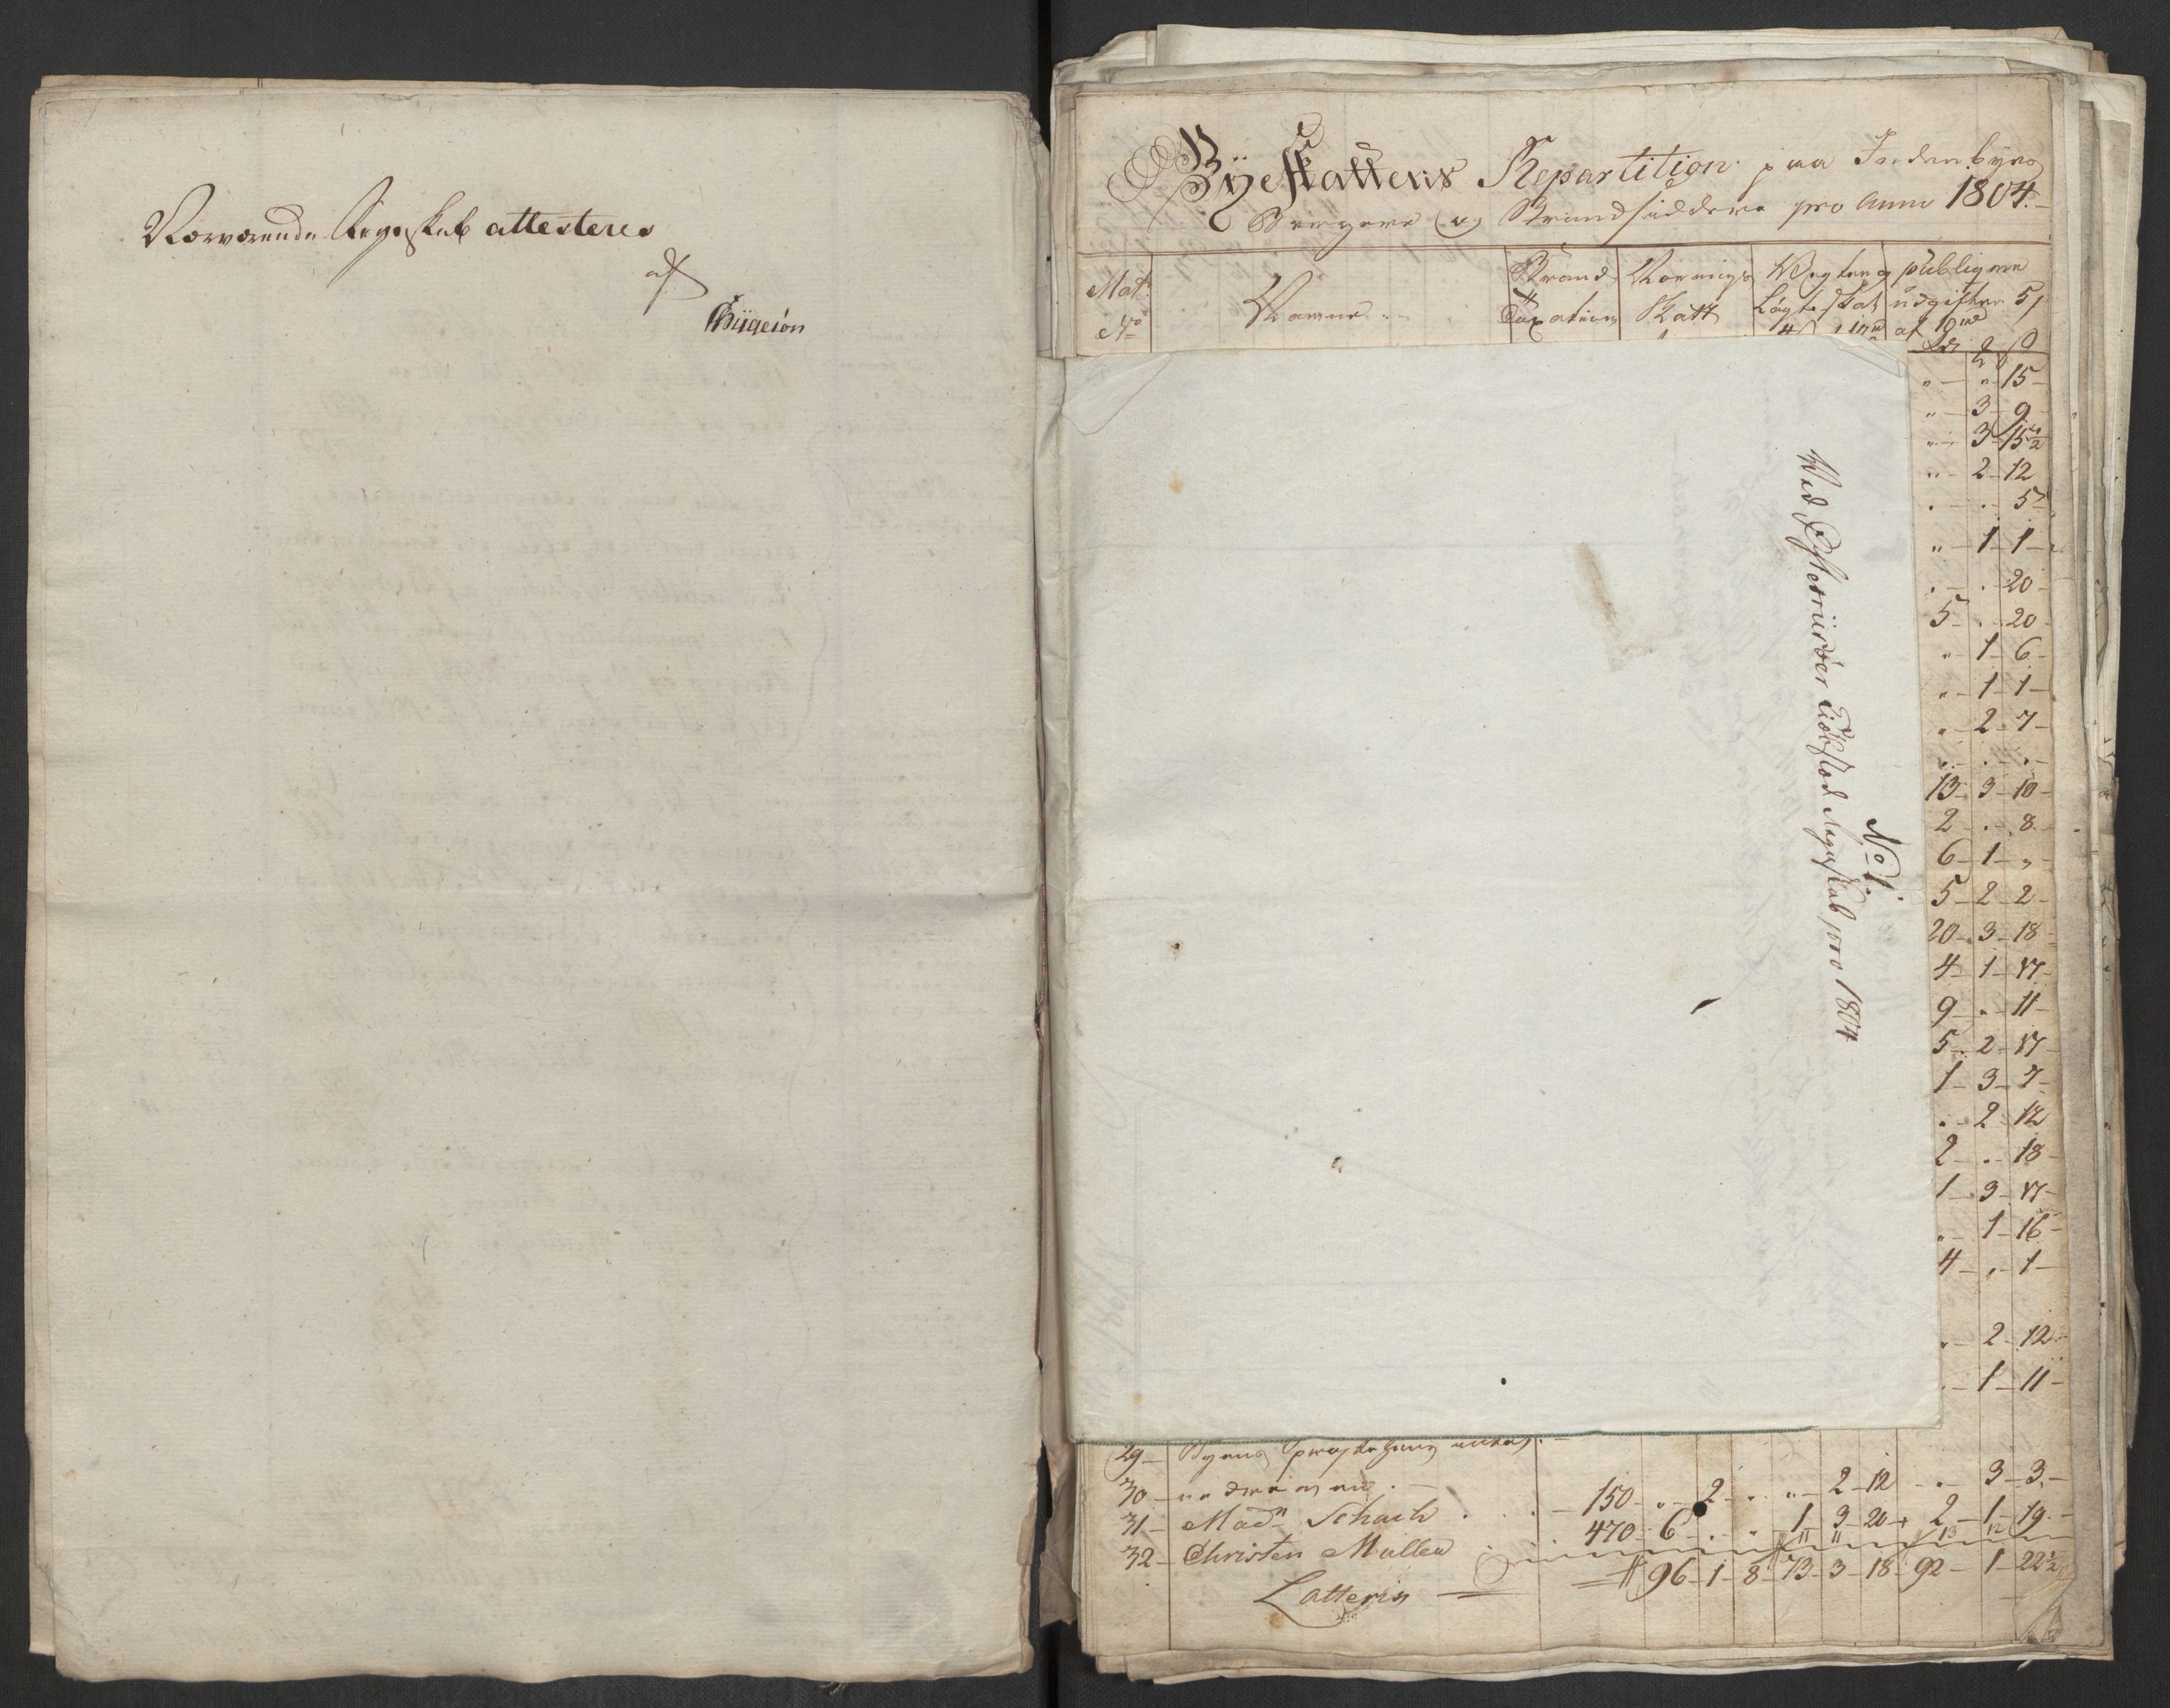 Nærværende Regnskab attesteres
af
Byeskattens Repartition paa Indenbyes
Borgere og Strandsiddere pro Anno 1804.
Mat. No
Navne
Brand Taxation
Nærings Skatt
Vægter og Løgte Skat
publique udgifter
" " 15
" 3 9
" 3 15½
" 2 12
" " 5
" 1 1
" " 20
5 " 20
" 1 6
" 1 1
" 2 7
" " "
13 3 10
2 " 8
6 1 "
5 2 2
20 3 18
4 1 17
9 " 11
5 2 17
1 3 7
" 2 12
2 " 18
1 3 17
" 1 16
4 " 1
" 2 12
" 1 11
No 1.
Ved Østerriisöer Kiøbstad Regnskab pro 1804
29 Byens
30 " 3 3
31 Madm Schach 150 " 2 " " 2 12
32 Christen Møller 470 6 " " 1 3 20 2 1 19
Latteris 96 1 8 73 3 18 92 1 22½